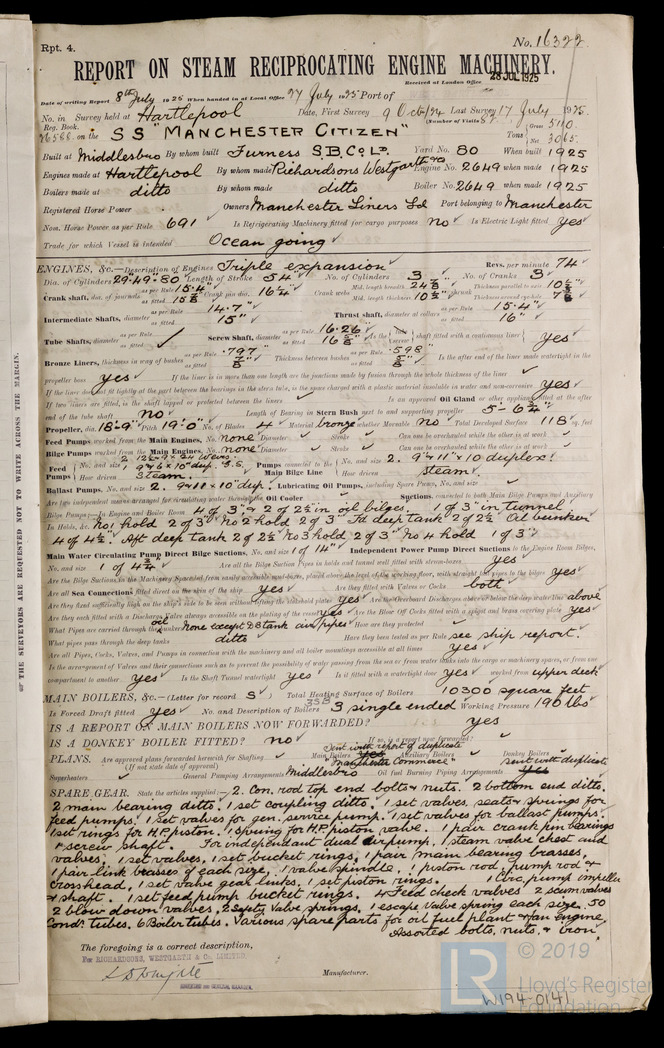 Rpt. 4.
No. 16322
REPORT ON STEAM RECIPROCATING ENGINE MACHINERY.
Received at London Office 28 JUL 1925
Date of writing Report 8th July 1925 When handed in at Local Office 27 July 1925 Port of
No. in Survey held at Hartlepool Date, First Survey 9 Oct/24 Last Survey 17 July 1925.
Reg. Book. (Number of Visits
on the SS "MANCHESTER CITIZEN" Tons Gross 5110 Net 3065
Built at Middlesbro By whom built Furness S.B. Co Ld. Yard No. 80 When built 1925
Engines made at Hartlepool By whom made Richardsons Westgarth Engine No. 2649 when made 1925
Boilers made at ditto By whom made ditto Boiler No. 2649 when made 1925
Registered Horse Power Owners Manchester Liners Ld Port belonging to Manchester
Nom. Horse Power as per Rule 691 Is Refrigerating Machinery fitted for cargo purposes no Is Electric Light fitted yes
Trade for which Vessel is intended Ocean going
ENGINES, &c.—Description of Engines Triple expansion Revs. per minute 74
Dia. of Cylinders 29.49.80 Length of Stroke 54" No. of Cylinders 3 No. of Cranks 3
Crank shaft, dia. of journals as per Rule 15.4" as fitted 15 7/8" Crank pin dia. 16 1/4" Crank webs Mid. length breadth 24 5/8" Mid. length thickness 10 1/2"
Intermediate Shafts, diameter as per Rule 14.7" as fitted 15" Thrust shaft, diameter at collars as per Rule 15.4" as fitted 16"
Tube Shafts, diameter as per Rule as fitted Screw Shaft, diameter as per Rule 16.26 as fitted 16 5/8 Is the shaft fitted with a continuous liner yes
Bronze Liners, thickness in way of bushes as per Rule .797" as fitted Thickness between bushes as per Rule .598 as fitted Is the after end of the liner made watertight in the
propeller boss yes If the liner is in more than one length are the junctions made by fusion through the whole thickness of the liner
If the liner does not fit tightly at the part between the bearings in the stern tube, is the space charged with a plastic material insoluble in water and non-corrosive yes
If two liners are fitted, is the shaft lapped or protected between the liners Is an approved Oil Gland or other appliance fitted at the after
end of the tube shaft no Length of Bearing in Stern Bush next to and supporting propeller 5-6 3/4"
Propeller, dia. 18'-9" Pitch 19'-0" No. of Blades 4 Material bronze whether Moveable no Total Developed Surface 118 sq. feet
Feed Pumps worked from the Main Engines, No. none Diameter Stroke Can one be overhauled while the other is at work
Bilge Pumps worked from the Main Engines, No. none Diameter Stroke Can one be overhauled while the other is at work
Feed Pumps No. and size How driven steam. Pumps connected to the Main Bilge Line No. and size 2. 9" x 11" x 10 duplex How driven Steam
Ballast Pumps, No. and size 2. 9 x 11 x 10" dup. Lubricating Oil Pumps, including Spare Pump, No. and size
Are two independent means arranged for circulating water through the Oil Cooler Suctions, connected to both Main Bilge Pumps and Auxiliary
Bilge Pumps:—In Engine and Boiler Room 4 of 3" & 2 of 2 1/2" in oil bilges. 1 of 3" in tunnel
In Holds, &c. No 1 hold 2 of 3" No 2 hold 2 of 3" Fd deep tank 2 of 2 1/2" Oil bunker
4 of 4 1/2" Aft deep tank 2 of 2 1/2 No 3 hold 2 of 3" No 4 hold 1 of 3"
Main Water Circulating Pump Direct Bilge Suctions, No. and size 1 of 14" Independent Power Pump Direct Suctions to the Engine Room Bilges,
No. and size 1 of 4 3/4 Are all the Bilge Suction Pipes in holds and tunnel well fitted with strum-boxes yes
Are the Bilge Suctions in the Machinery Space led from easily accessible mud-boxes, placed above the level of the working floor, with straight tail pipes to the bilges yes
Are all Sea Connections fitted direct on the skin of the ship yes Are they fitted with Valves or Cocks both
Are they fixed sufficiently high on the ship's side to be seen without lifting the stokehold plates yes Are the Overboard Discharges above or below the deep water line above
Are they each fitted with a Discharge Valve always accessible on the plating of the vessel yes Are the Blow Off Cocks fitted with a spigot and brass covering plate yes
What Pipes are carried through the oil bunkers None except DB tank air pipes How are they protected
What pipes pass through the deep tanks ditto Have they been tested as per Rule see ship report.
Are all Pipes, Cocks, Valves, and Pumps in connection with the machinery and all boiler mountings accessible at all times yes
Is the arrangement of Valves and their connections such as to prevent the possibility of water passing from the sea or from water tanks into the cargo or machinery spaces, or from one
compartment to another yes Is the Shaft Tunnel watertight yes Is it fitted with a watertight door yes worked from upper deck
MAIN BOILERS, &c.—(Letter for record S) Total Heating Surface of Boilers 10300 square feet
Is Forced Draft fitted yes No. and Description of Boilers 3 single ended Working Pressure 190 lbs
IS A REPORT ON MAIN BOILERS NOW FORWARDED? yes
IS A DONKEY BOILER FITTED? no If so, is a report now forwarded?
PLANS. Are approved plans forwarded herewith for Shafting Main Boilers Sent with report of duplicate "Manchester Commerce" Auxiliary Boilers Donkey Boilers sent with duplicate
(If not state date of approval)
Superheaters General Pumping Arrangements Middlesbro Oil fuel Burning Piping Arrangements yes
SPARE GEAR. State the articles supplied:— 2. Con. rod top end bolts & nuts. 2 bottom end ditto.
2 main bearing ditto. 1 set coupling ditto. 1 set valves, seats & springs for
feed pumps. 1 set valves for gen. service pump. 1 set valves for ballast pumps.
1 set rings for H.P. piston. 1 spring for H.P. piston valve. 1 pair crank pin bearings
1 screw shaft. For independent dual air pump, 1 steam valve chest and
valves, 1 set valves, 1 set bucket rings, 1 pair main bearing brasses,
1 pair link brasses of each size, 1 valve spindle, 1 piston rod, pump rod &
crosshead, 1 set valve gear links, 1 set piston rings. 1 Circ. pump impeller
& shaft. 1 set feed pump bucket rings. 4 Feed check valves 2 scum valves
2 blow down valves, 2 Safety Valve springs, 1 escape valve spring each size. 50
Cond. tubes, 6 Boiler tubes. Various spare parts for oil fuel plant & fan engine.
Assorted bolts, nuts, & iron
The foregoing is a correct description,
For RICHARDSONS, WESTGARTH & Co. LIMITED,
Manufacturer.
OF THE SURVEYORS ARE REQUESTED NOT TO WRITE ACROSS THE MARGIN.
© 2019
LR
Lloyd's Register
Foundation
W194-0141